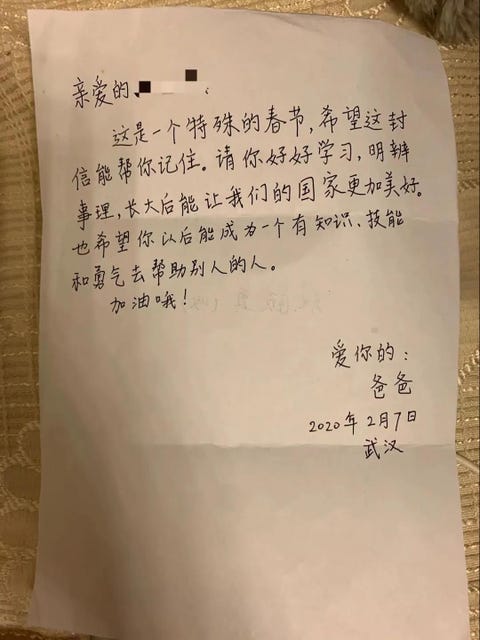 亲爱的
这是一个特殊的春节，希望这封
信能帮你记住。请你好好学习，明辨
事理，长大后能让我们的国家更加美好。
也希望你以后能成为一个有知识、技能
和勇气去帮助别人的人。
加油哦！
爱你的：
爸爸
2020年2月7日
武汉